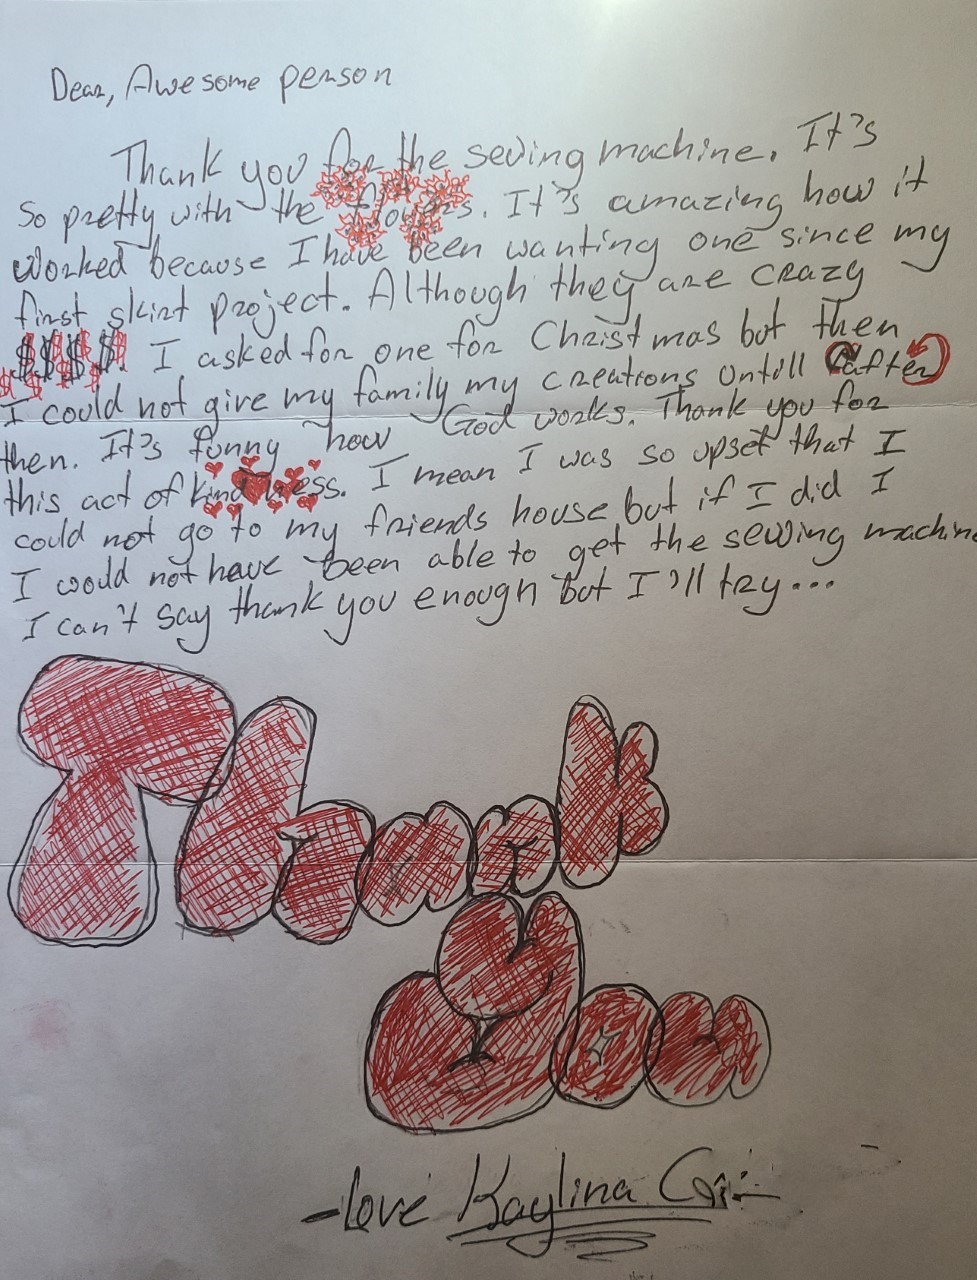 Dear, Awesome person
Thank you for the sewing machine. It's
so pretty with the flowers. It's amazing how it
worked because I have been wanting one since my
first skirt project. Although they are crazy
$$$$$. I asked for one for Christmas but then
I could not give my family my creations untill after
then. It's funny how God works. Thank you for
this act of kindness. I mean I was so upset that I
could not go to my friends house but if I did I
I would not have been able to get the sewing machine
I can't say thank you enough but I'll try...
Thank
You
-Love Kaylina